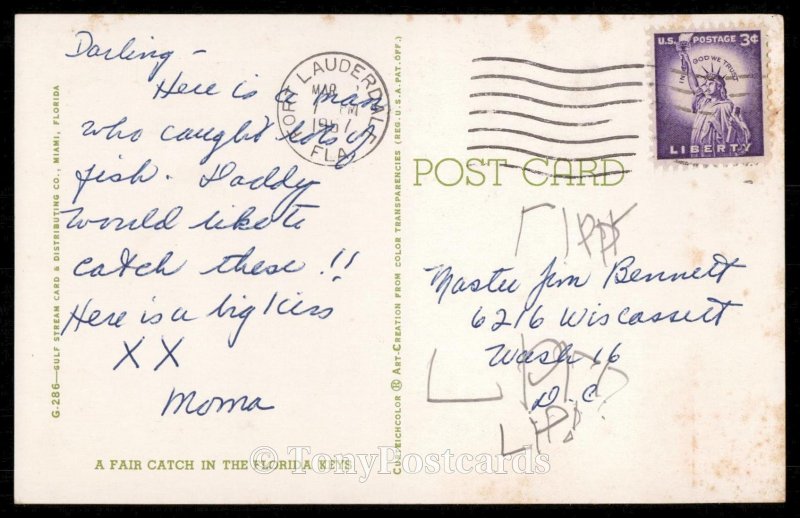 Darling -
Here is a man
who caught lots of
fish. Daddy
would like to
catch these!!
Here is a big kiss
X X
Moma
A FAIR CATCH IN THE FLORIDA KEYS
G-286—GULF STREAM CARD & DISTRIBUTING CO., MIAMI, FLORIDA
FORT LAUDERDALE
MAR
PM
1967
FLA.
CURTEICHCOLOR ® ART-CREATION FROM COLOR TRANSPARENCIES (REG. U.S.A. PAT. OFF.)
POST CARD
U.S. POSTAGE 3¢
IN GOD WE TRUST
LIBERTY
Master Jim Bennett
6216 Wiscassett
Wash 16
D.C.
© TonyPostcards